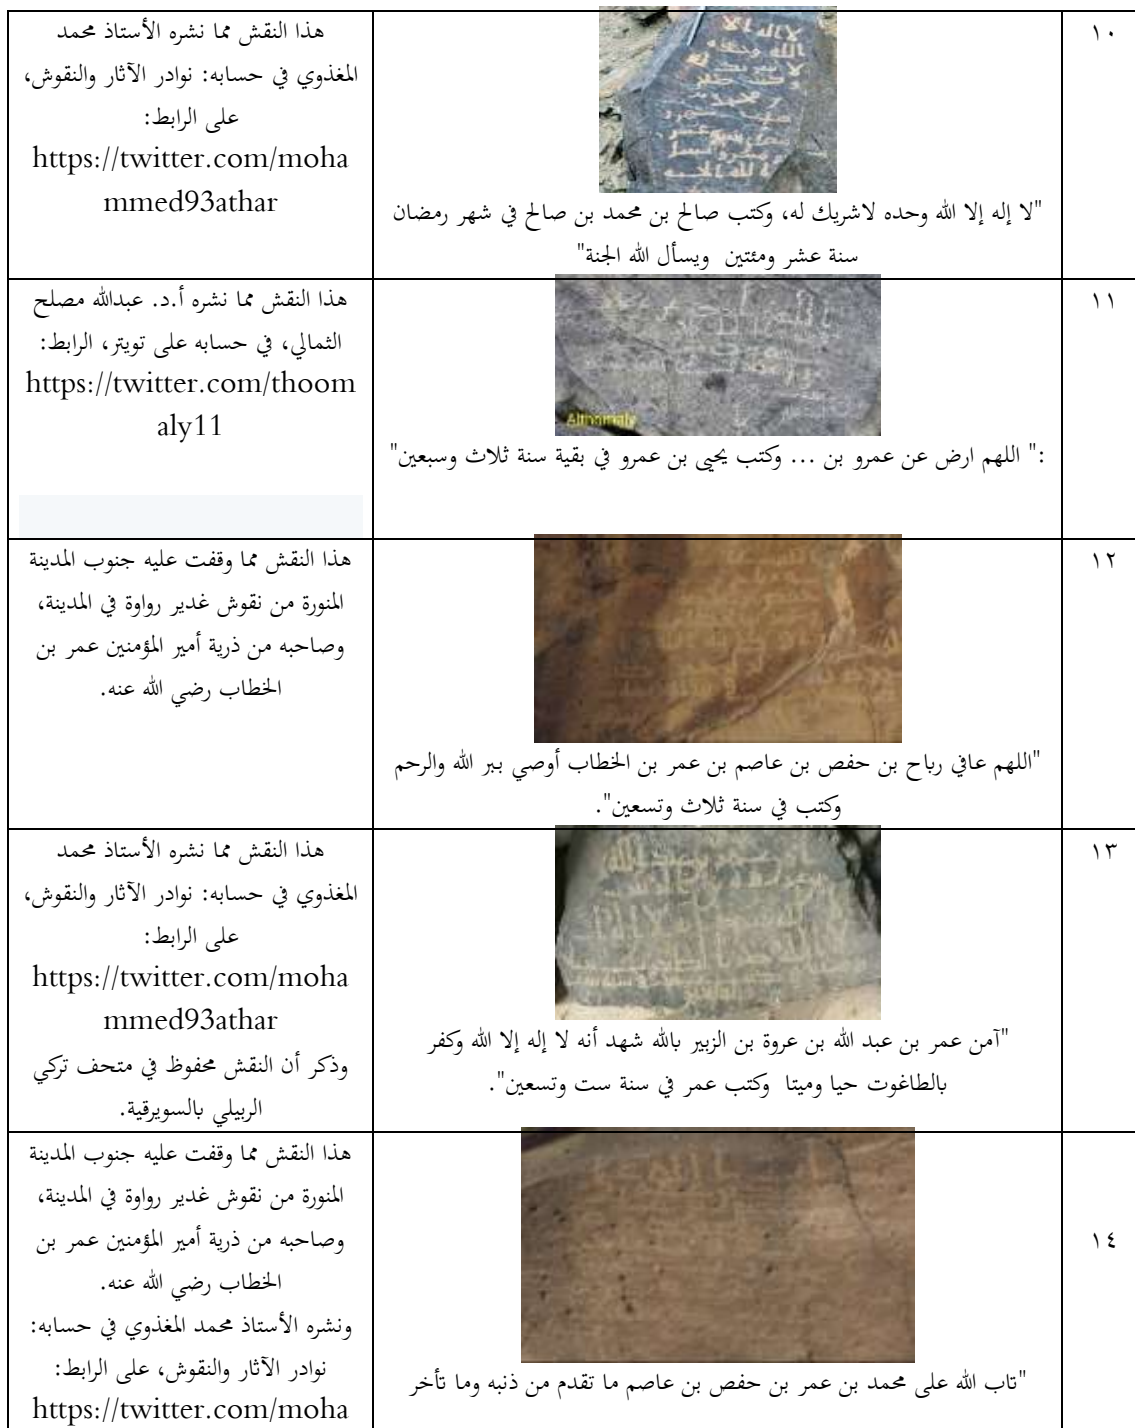 ١٠
"لا إله إلا الله وحده لاشريك له، وكتب صالح بن محمد بن صالح في شهر رمضان
سنة عشر ومئتين ويسأل الله الجنة"
هذا النقش مما نشره الأستاذ محمد
المغذوي في حسابه: نوادر الآثار والنقوش،
على الرابط:
https://twitter.com/moha
mmed93athar
١١
Althomaly
:" اللهم ارض عن عمرو بن ... وكتب يحيى بن عمرو في بقية سنة ثلاث وسبعين"
هذا النقش مما نشره أ.د. عبدالله مصلح
الثمالي، في حسابه على تويتر، الرابط:
https://twitter.com/thoom
aly11
١٢
"اللهم عافي رباح بن حفص بن عاصم بن عمر بن الخطاب أوصي ببر الله والرحم
وكتب في سنة ثلاث وتسعين".
هذا النقش مما وقفت عليه جنوب المدينة
المنورة من نقوش غدير رواوة في المدينة،
وصاحبه من ذرية أمير المؤمنين عمر بن
الخطاب رضي الله عنه.
١٣
"آمن عمر بن عبد الله بن عروة بن الزبير بالله شهد أنه لا إله إلا الله وكفر
بالطاغوت حيا وميتا وكتب عمر في سنة ست وتسعين".
هذا النقش مما نشره الأستاذ محمد
المغذوي في حسابه: نوادر الآثار والنقوش،
على الرابط:
https://twitter.com/moha
mmed93athar
وذكر أن النقش محفوظ في متحف تركي
الربيلي بالسويرقية.
١٤
"تاب الله على محمد بن عمر بن حفص بن عاصم ما تقدم من ذنبه وما تأخر
هذا النقش مما وقفت عليه جنوب المدينة
المنورة من نقوش غدير رواوة في المدينة،
وصاحبه من ذرية أمير المؤمنين عمر بن
الخطاب رضي الله عنه.
ونشره الأستاذ محمد المغذوي في حسابه:
نوادر الآثار والنقوش، على الرابط:
https://twitter.com/moha